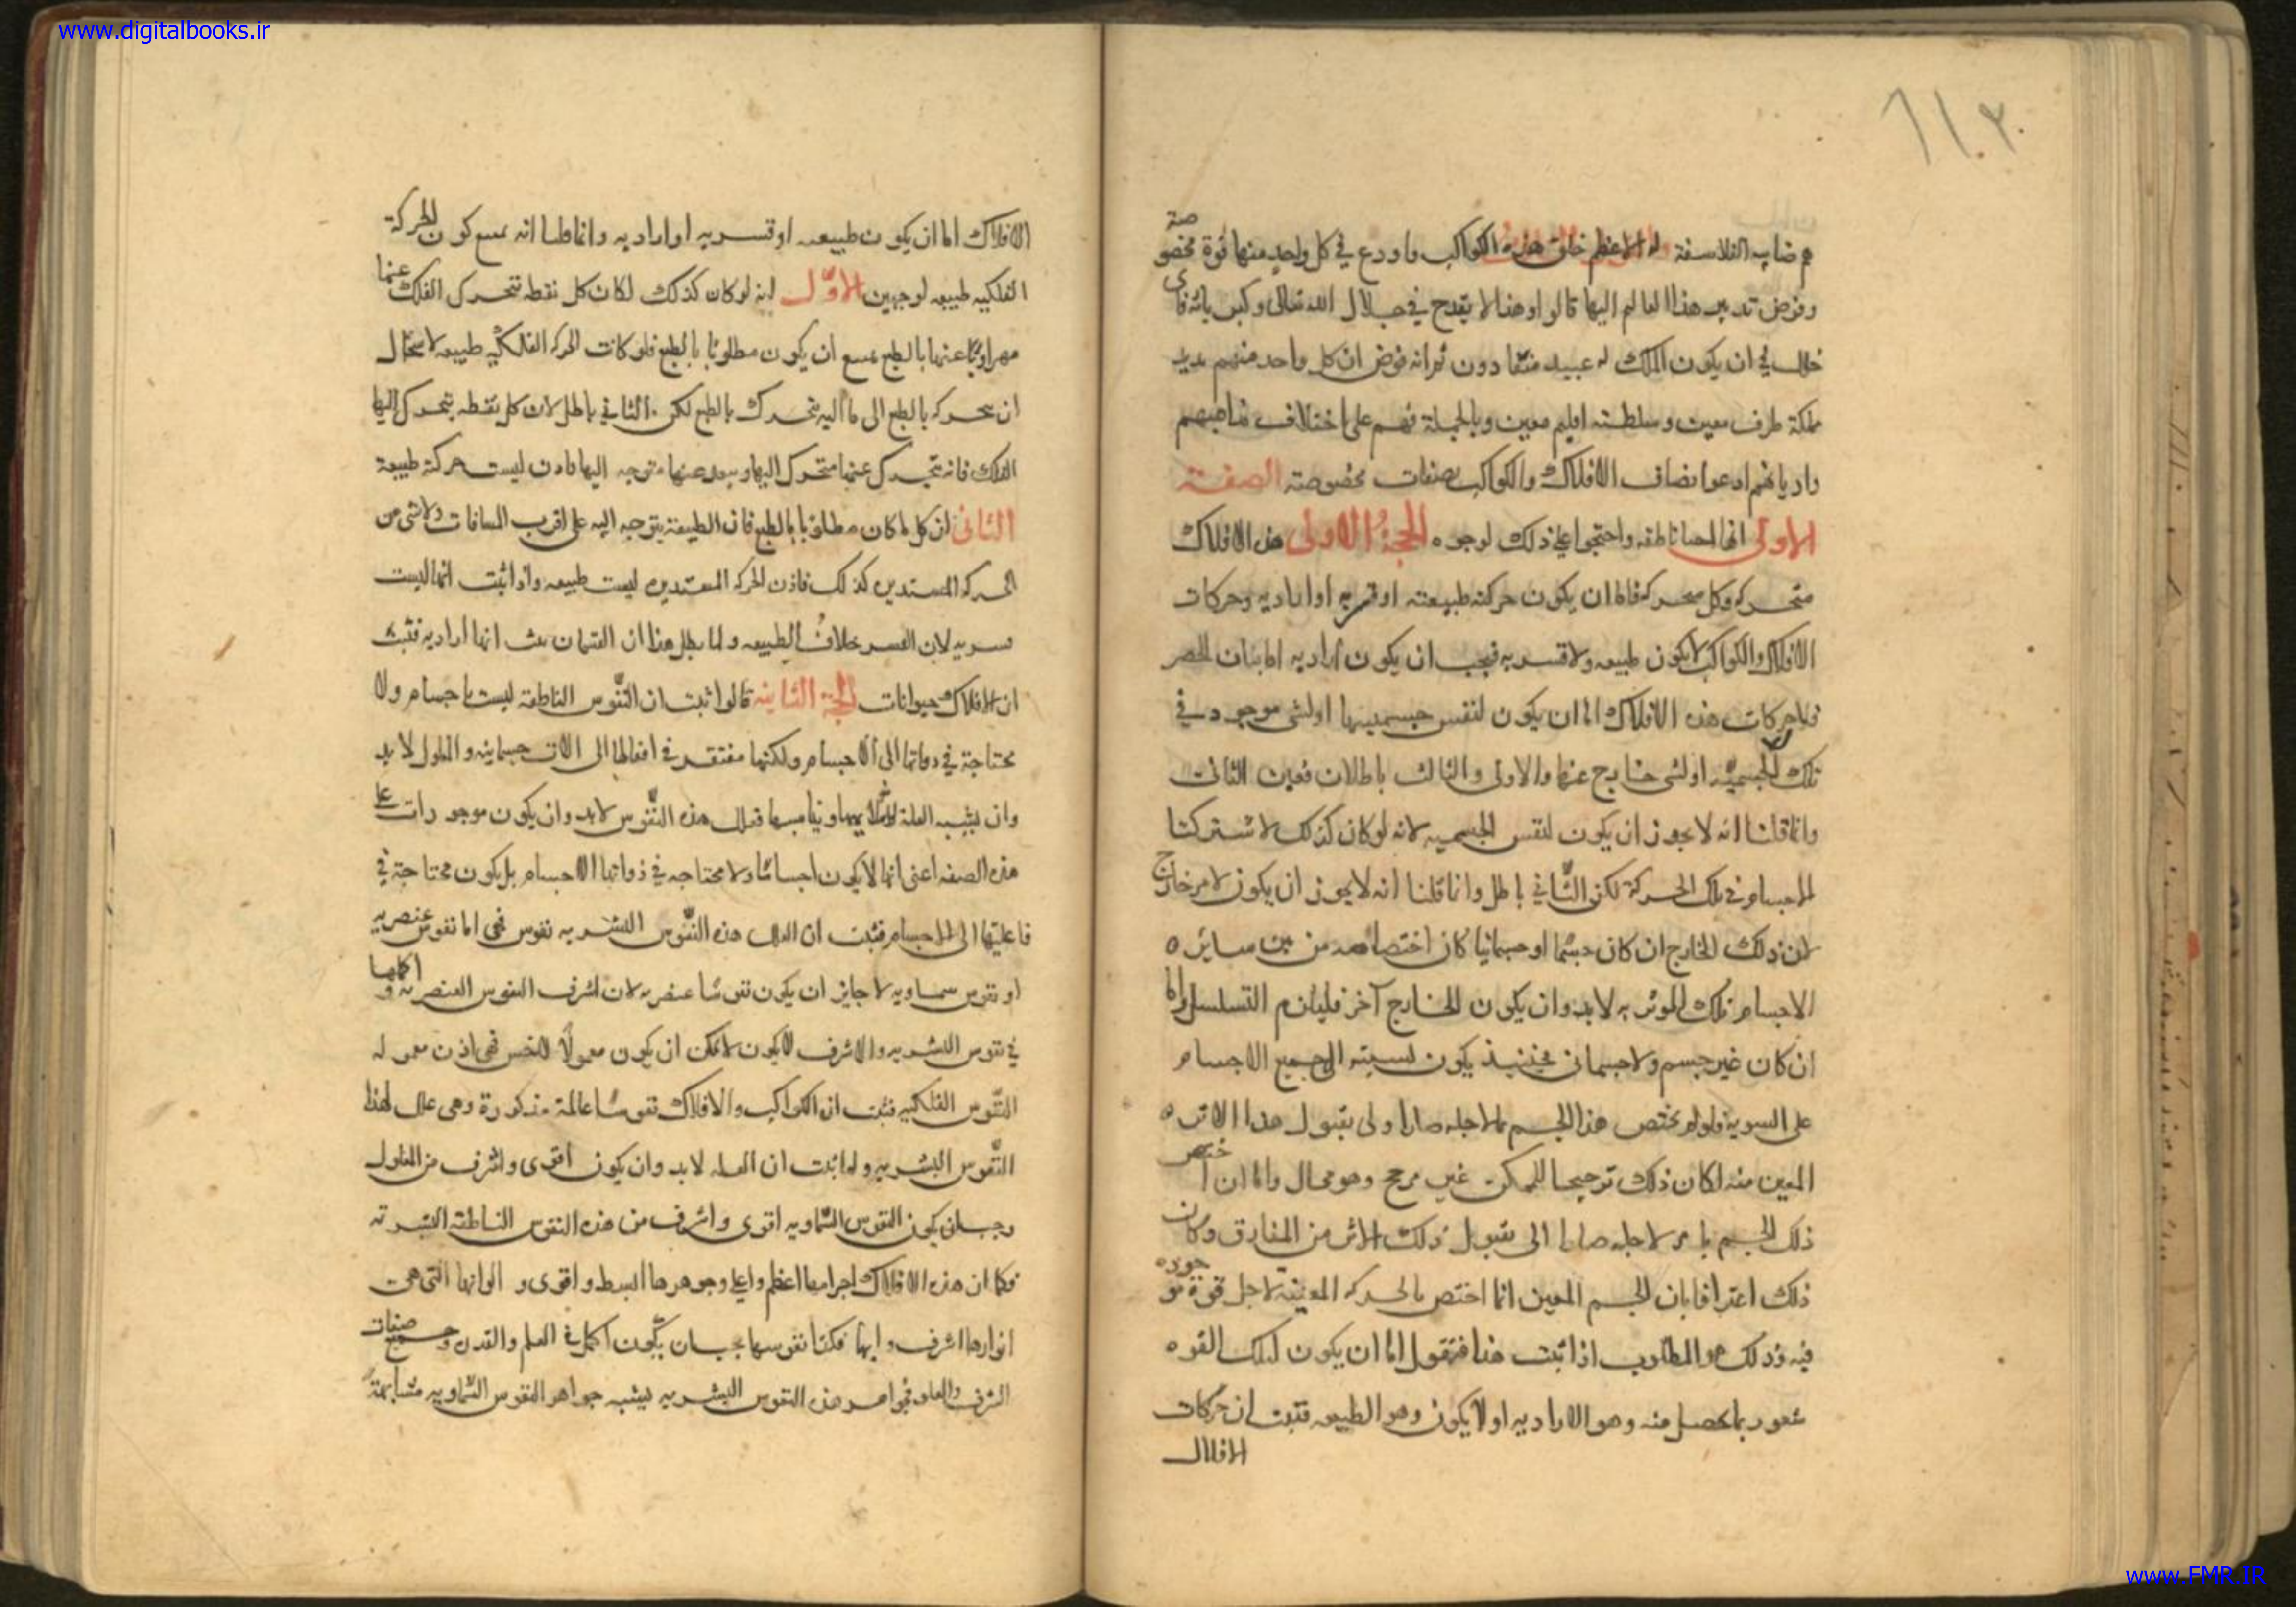 www.digitalbooks.ir
هم صابيه الفلاسفة الاله الاعظم خلق هذه الكواكب واودع في كل واحد منها قوة مخصوصة
وفوض تدبير هذا العالم اليها قالوا وهذا لا يقدح في جلال الله تعالى وكبريائه فاى
خلل في ان يكون الملك له عبيد منقادون ثم انه فوض ان كل واحد منهم تدبير
مملكة طرف معين وسلطنة اقليم معين وبالجملة فهم على اختلاف مذاهبهم
واديانهم ادعوا اتصاف الافلاك والكواكب بصفات مخصوصة الصفة
الاولى انها احيا ناطقه واحتجوا على ذلك لوجوه الحجة الاولى هذه الافلاك
متحركه وكل متحركه فاما ان يكون حركته طبيعته او قسريه او اراديه وحركات
الافلاك والكواكب لا يكون طبيعيه ولا قسريه فيجب ان يكون اراديه اما بيان الحصر
فلان حركات هذه الافلاك اما ان يكون لنفس جسميتها او لشى موجود في
تلك الجسميه او لشى خارج عنها والاول والثالث باطلان فعين الثانى
وانما قلنا انه لا يجوز ان يكون لنفس الجسميه لانه لو كان كذلك لاشتركتا
الاجسام في تلك الحركة لكن الثاني باطل وانما قلنا انه لا يجوز ان يكون لامر خارج
لان ذلك الخارج ان كان جسما او جسمانيا كان اختصاصه من بين ساير
الاجسام بتلك الموثريه لابد وان يكون للخارج آخر فليلزم التسلسل واما
ان كان غير جسم ولا جسمانى فحينيذ يكون نسبته الى جميع الاجسام
على السوية فلو لم يختص هذا الجسم بما لاجله صار اولى بقبول هذا الاثر
المعين منه لكان ذلك ترجيحا للممكن غير مرجح وهو محال واما ان اختص
ذلك الجسم بامر لاجله صار اولى بقبول ذلك الاثر من المفارق وكان
ذلك اعترافا بان الجسم المعين انما اختص بالحركه المعينه لاجل قوة موجوده
فيه وذلك هو المطلوب اذا ثبت هذا فنقول اما ان يكون لتلك القوه
شعور بما يحصل منه وهو الاراديه او لا يكون وهو الطبيعه فثبت ان حركات
الافلاك
الافلاك اما ان يكون طبيعيه او قسريه او اراديه وانما قلنا انه يمتنع كون الحركة
الفلكيه طبيعيه لوجهين الاول انه لو كان كذلك لكان كل نقطه تتحرك الفلك عنها
مهروبا عنها بالطبع يمتنع ان يكون مطلوبا بالطبع فلو كانت الحركه الفلكيه طبيعيه لاستحال
ان يتحرك بالطبع الى ما اليه يتحرك بالطبع لكن الثاني باطل لان كل نقطه يتحرك اليها
الفلك فانه تتحرك عنها متحرك اليها وبعد عنها متوجه اليها فاذن ليست حركته طبيعية
الثانى ان كل ما كان مطلوبا بالطبع فان الطبيعة يتوجه اليه على اقرب المسافات ولا شى من
الحركه المستديره كذلك فاذن الحركه المستديره ليست طبيعيه واذا ثبت انها ليست
قسريه لان القسر خلاف الطبيعه ولما بطل هذان القسمان ثبت انها اراديه فثبت
ان الافلاك حيوانات الحجة الثانيه قالوا ثبت ان النفوس الناطقه ليست باجسام ولا
محتاجة في ذواتها الى الاجسام ولكنها مفتقره في افعالها الى الات جسمانيه والمعلول لا بد
وان يشبه العلة ليلائمها ويناسبها فعلل هذه النفوس لابد وان يكون موجودات على
هذه الصفه اعنى انها لا يكون اجساما ولا محتاجه في ذواتها الاجسام بل يكون محتاجة في
فاعليتها الى الاجسام فثبت ان العلل هذه النفوس البشريه نفوس فهى اما نفوس عنصريه
او نفوس سماويه لا جايز ان يكون نفوسا عنصريه لان اشرف النفوس العنصريه واكملها
في نفوس البشريه والاشرف لا يكون لا يمكن ان يكون معلولا للاخس فهى اذن معموله
النفوس الفلكيه فثبت ان الكواكب والافلاك نفوسا عالمة مذكورة وهى علل لهذا
النفوس البشريه ولما ثبت ان العله لابد وان يكون اقوى واشرف من المعلول
وجب ان يكون النفوس السماويه اقوى واشرف من هذه النفوس الناطقه البشريه
فكما ان هذه الافلاك اجرامها اعظم واعلى وجوهرها ابسط واقوى والوانها التى هى
انوارها اشرف وابها فكذا نفوسها يجب ان يكون اكمل في العلم والقدره وجميع صفات
الشرف والعلو فجواهر هذه النفوس البشريه يشبه جواهر النفوس السماويه مشابهة
www.FMR.IR